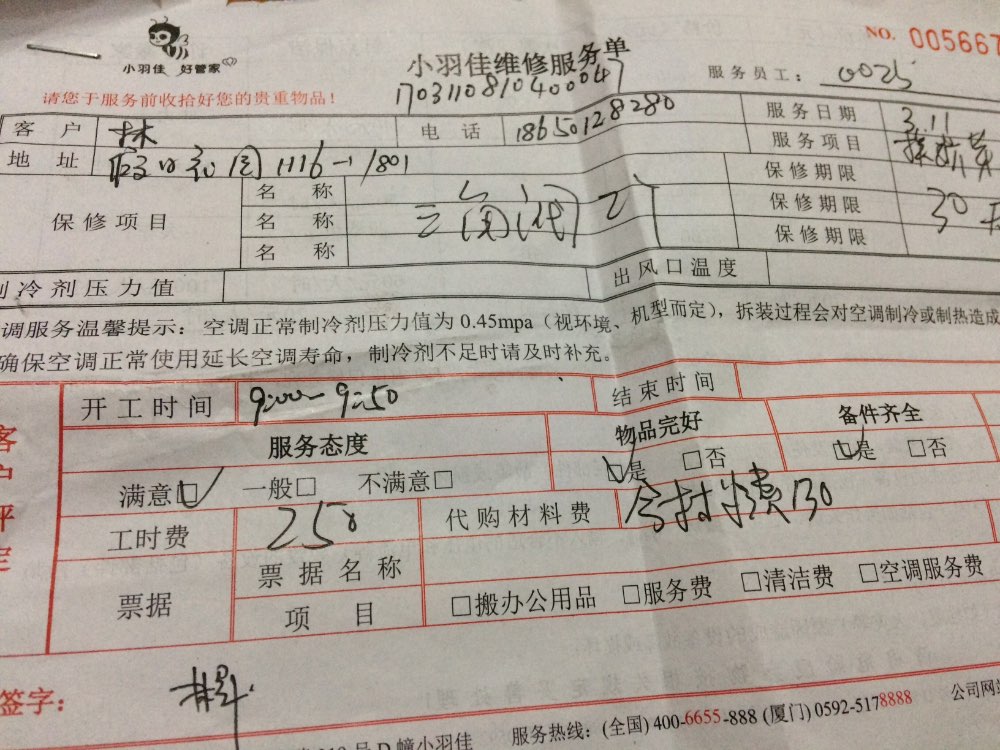 小羽佳 好管家
小羽佳维修服务单
NO. 005667
17031108104000047
服务员工: 0025
请您于服务前收拾好您的贵重物品!
客户 林 电话 18650128280 服务日期 3.11
地址 1116-1801 服务项目
保修项目 名称 保修期限
名称 保修期限 30天
名称 保修期限
制冷剂压力值 出风口温度
调服务温馨提示: 空调正常制冷剂压力值为 0.45mpa (视环境、机型而定), 拆装过程会对空调制冷或制热造成
确保空调正常使用延长空调寿命, 制冷剂不足时请及时补充。
客户评定
开工时间 9:00-9:50 结束时间
服务态度 物品完好 备件齐全
满意□ 一般□ 不满意□ □是 □否 □是 □否
工时费 250 代购材料费 含材料费130
票据 票据名称
项目 □搬办公用品 □服务费 □清洁费 □空调服务费
签字:
D幢小羽佳 服务热线: (全国) 400-6655-888 (厦门) 0592-5178888 公司网站